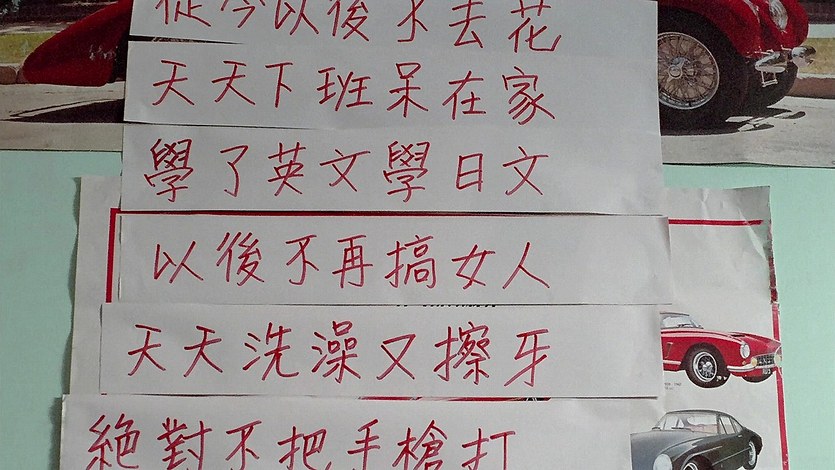 從今以後不去花
天天下班呆在家
學了英文學日文
以後不再搞女人
天天洗澡又擦牙
絕對不把手槍打